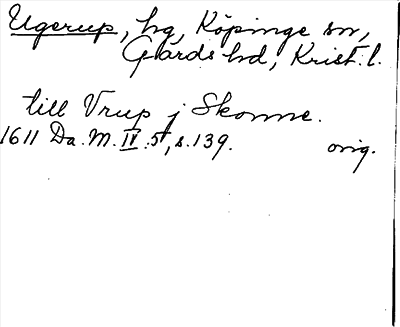 Ugerup, hg, Köpinge sn,
Gärds hd, Krist. l.
till Vrup j Skonne.
1611 Da. M. IV. 5, s. 139. orig.